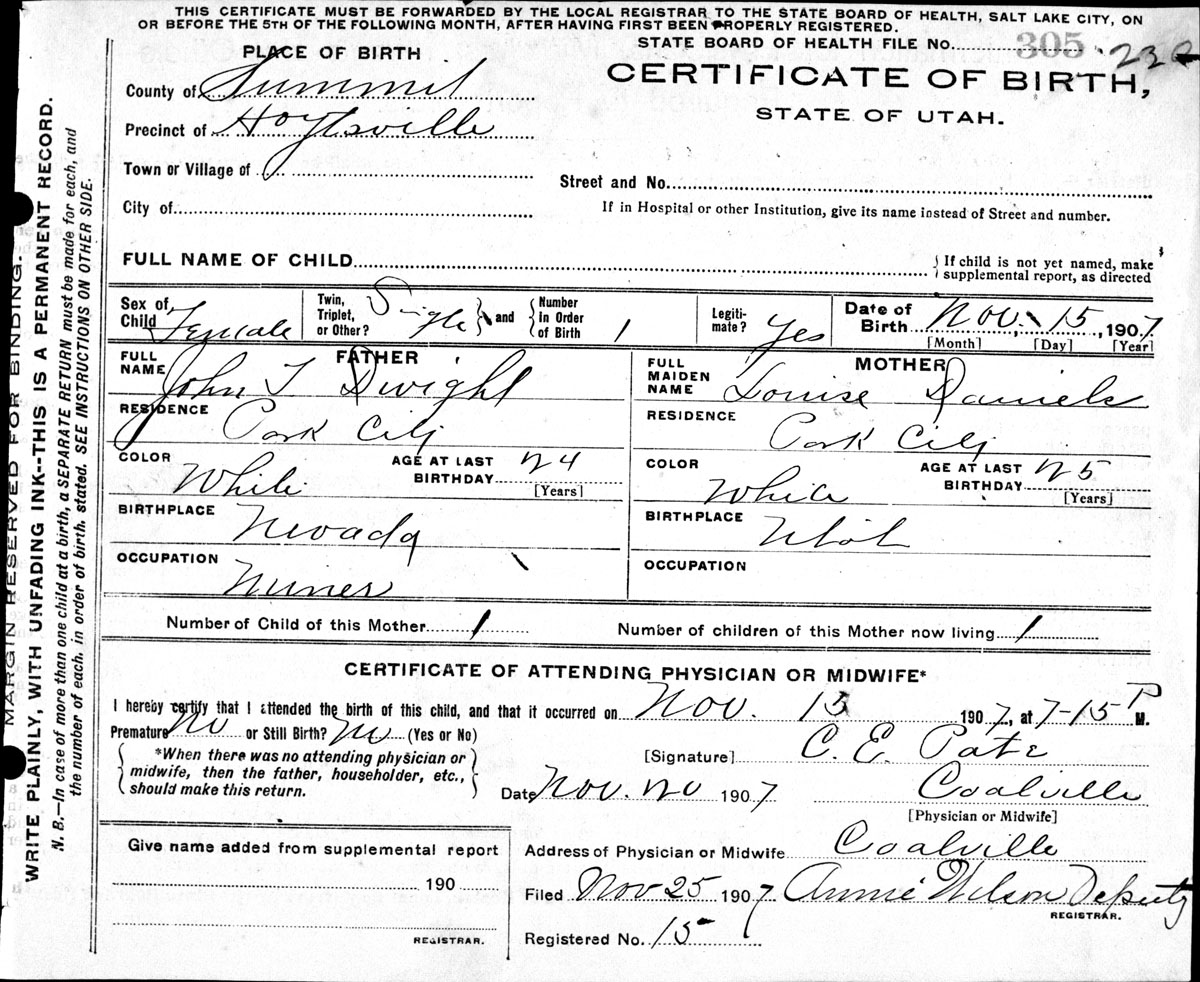 THIS CERTIFICATE MUST BE FORWARDED BY THE LOCAL REGISTRAR TO THE STATE BOARD OF HEALTH, SALT LAKE CITY, ON
OR BEFORE THE 5TH OF THE FOLLOWING MONTH, AFTER HAVING FIRST BEEN PROPERLY REGISTERED.
PLACE OF BIRTH
STATE BOARD OF HEALTH FILE NO. 305
County of Summit
CERTIFICATE OF BIRTH,
Precinct of Hoytsville
STATE OF UTAH.
Town or Village of
Street and No.
City of
If in Hospital or other Institution, give its name instead of Street and number.
FULL NAME OF CHILD
If child is not yet named, make
supplemental report, as directed
Sex of Child Female
Twin, Triplet, or Other? Single and Number in Order of Birth 1
Legitimate? Yes
Date of Birth Nov. 15, 1907
[Month] [Day] [Year]
FATHER
FULL NAME John T Dwight
MOTHER
FULL MAIDEN NAME Louise Daniels
RESIDENCE Park City
RESIDENCE Park City
COLOR White AGE AT LAST BIRTHDAY 24 [Years]
COLOR White AGE AT LAST BIRTHDAY 25 [Years]
BIRTHPLACE Nevada
BIRTHPLACE Utah
OCCUPATION Miner
OCCUPATION
Number of Child of this Mother 1
Number of children of this Mother now living 1
CERTIFICATE OF ATTENDING PHYSICIAN OR MIDWIFE*
I hereby certify that I attended the birth of this child, and that it occurred on Nov. 15 1907, at 7-15 P M.
Premature No or Still Birth? No (Yes or No)
*When there was no attending physician or
midwife, then the father, householder, etc.,
should make this return.
[Signature] C. E. Pate
Date Nov. 20 1907
Coalville
[Physician or Midwife]
Give name added from supplemental report
190
REGISTRAR.
Address of Physician or Midwife Coalville
Filed Nov 25 1907 Annie Wilson Deputy
REGISTRAR.
Registered No. 15
MARGIN RESERVED FOR BINDING.
WRITE PLAINLY, WITH UNFADING INK--THIS IS A PERMANENT RECORD.
N. B.—In case of more than one child at a birth, a SEPARATE RETURN must be made for each, and
the number of each, in order of birth, stated. SEE INSTRUCTIONS ON OTHER SIDE.